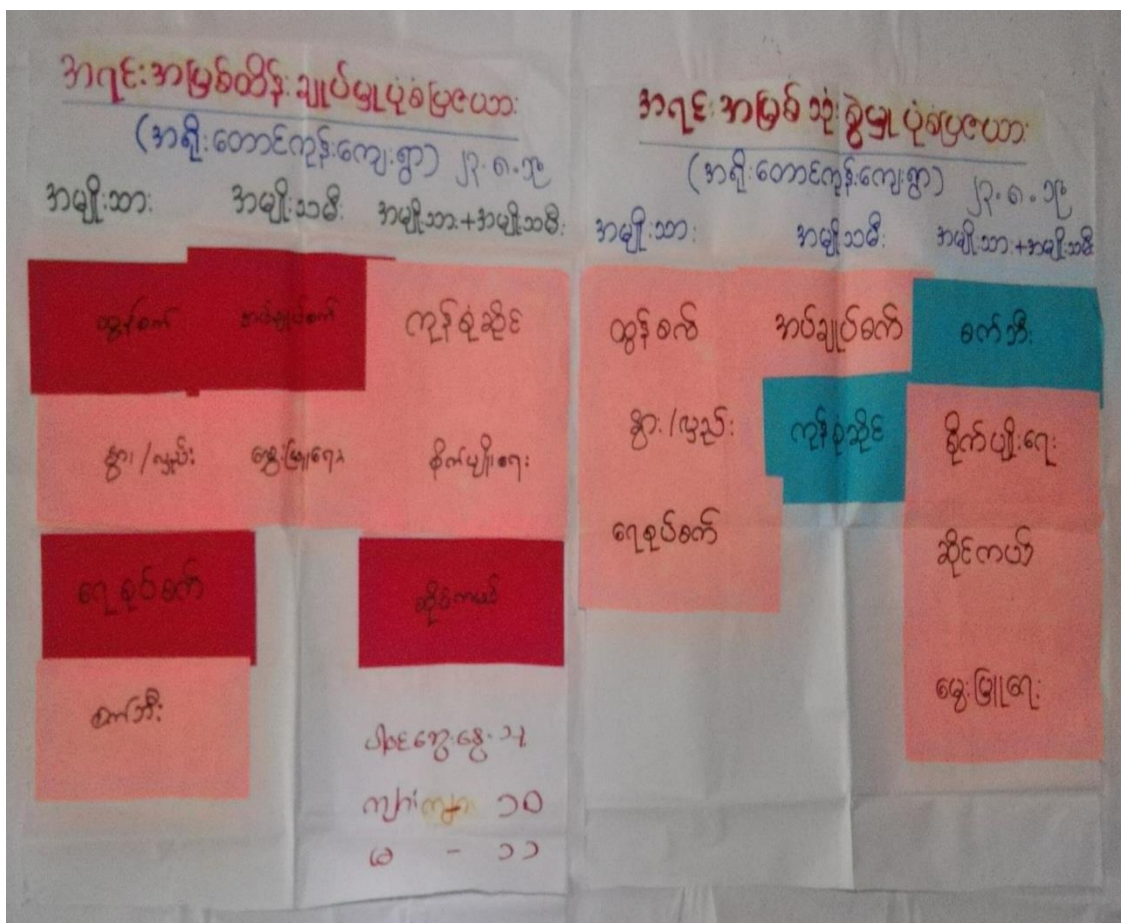 အရင်းအမြစ်ထိန်းချုပ်မှုပုံစံပြဇယား
(အရိုးတောင်ကုန်းကျေးရွာ) ၂၃.၈.၁၉
အမျိုးသား အမျိုးသမီး အမျိုးသား+အမျိုးသမီး
ထွန်စက် အပ်ချုပ်စက် ကုန်စုံဆိုင်
နွား/လှည်း မွေးမြူရေး စိုက်ပျိုးရေး
ရေစုပ်စက် ဆိုင်ကယ်
စက်ဘီး
ပါဝင်ဆွေးနွေးသူ
ကျား ၁၀
မ - ၁၁
အရင်းအမြစ်သုံးစွဲမှုပုံစံပြဇယား
(အရိုးတောင်ကုန်းကျေးရွာ) ၂၃.၈.၁၉
အမျိုးသား အမျိုးသမီး အမျိုးသား+အမျိုးသမီး
ထွန်စက် အပ်ချုပ်စက် စက်ဘီး
နွား/လှည်း ကုန်စုံဆိုင် စိုက်ပျိုးရေး
ရေစုပ်စက် ဆိုင်ကယ်
မွေးမြူရေး